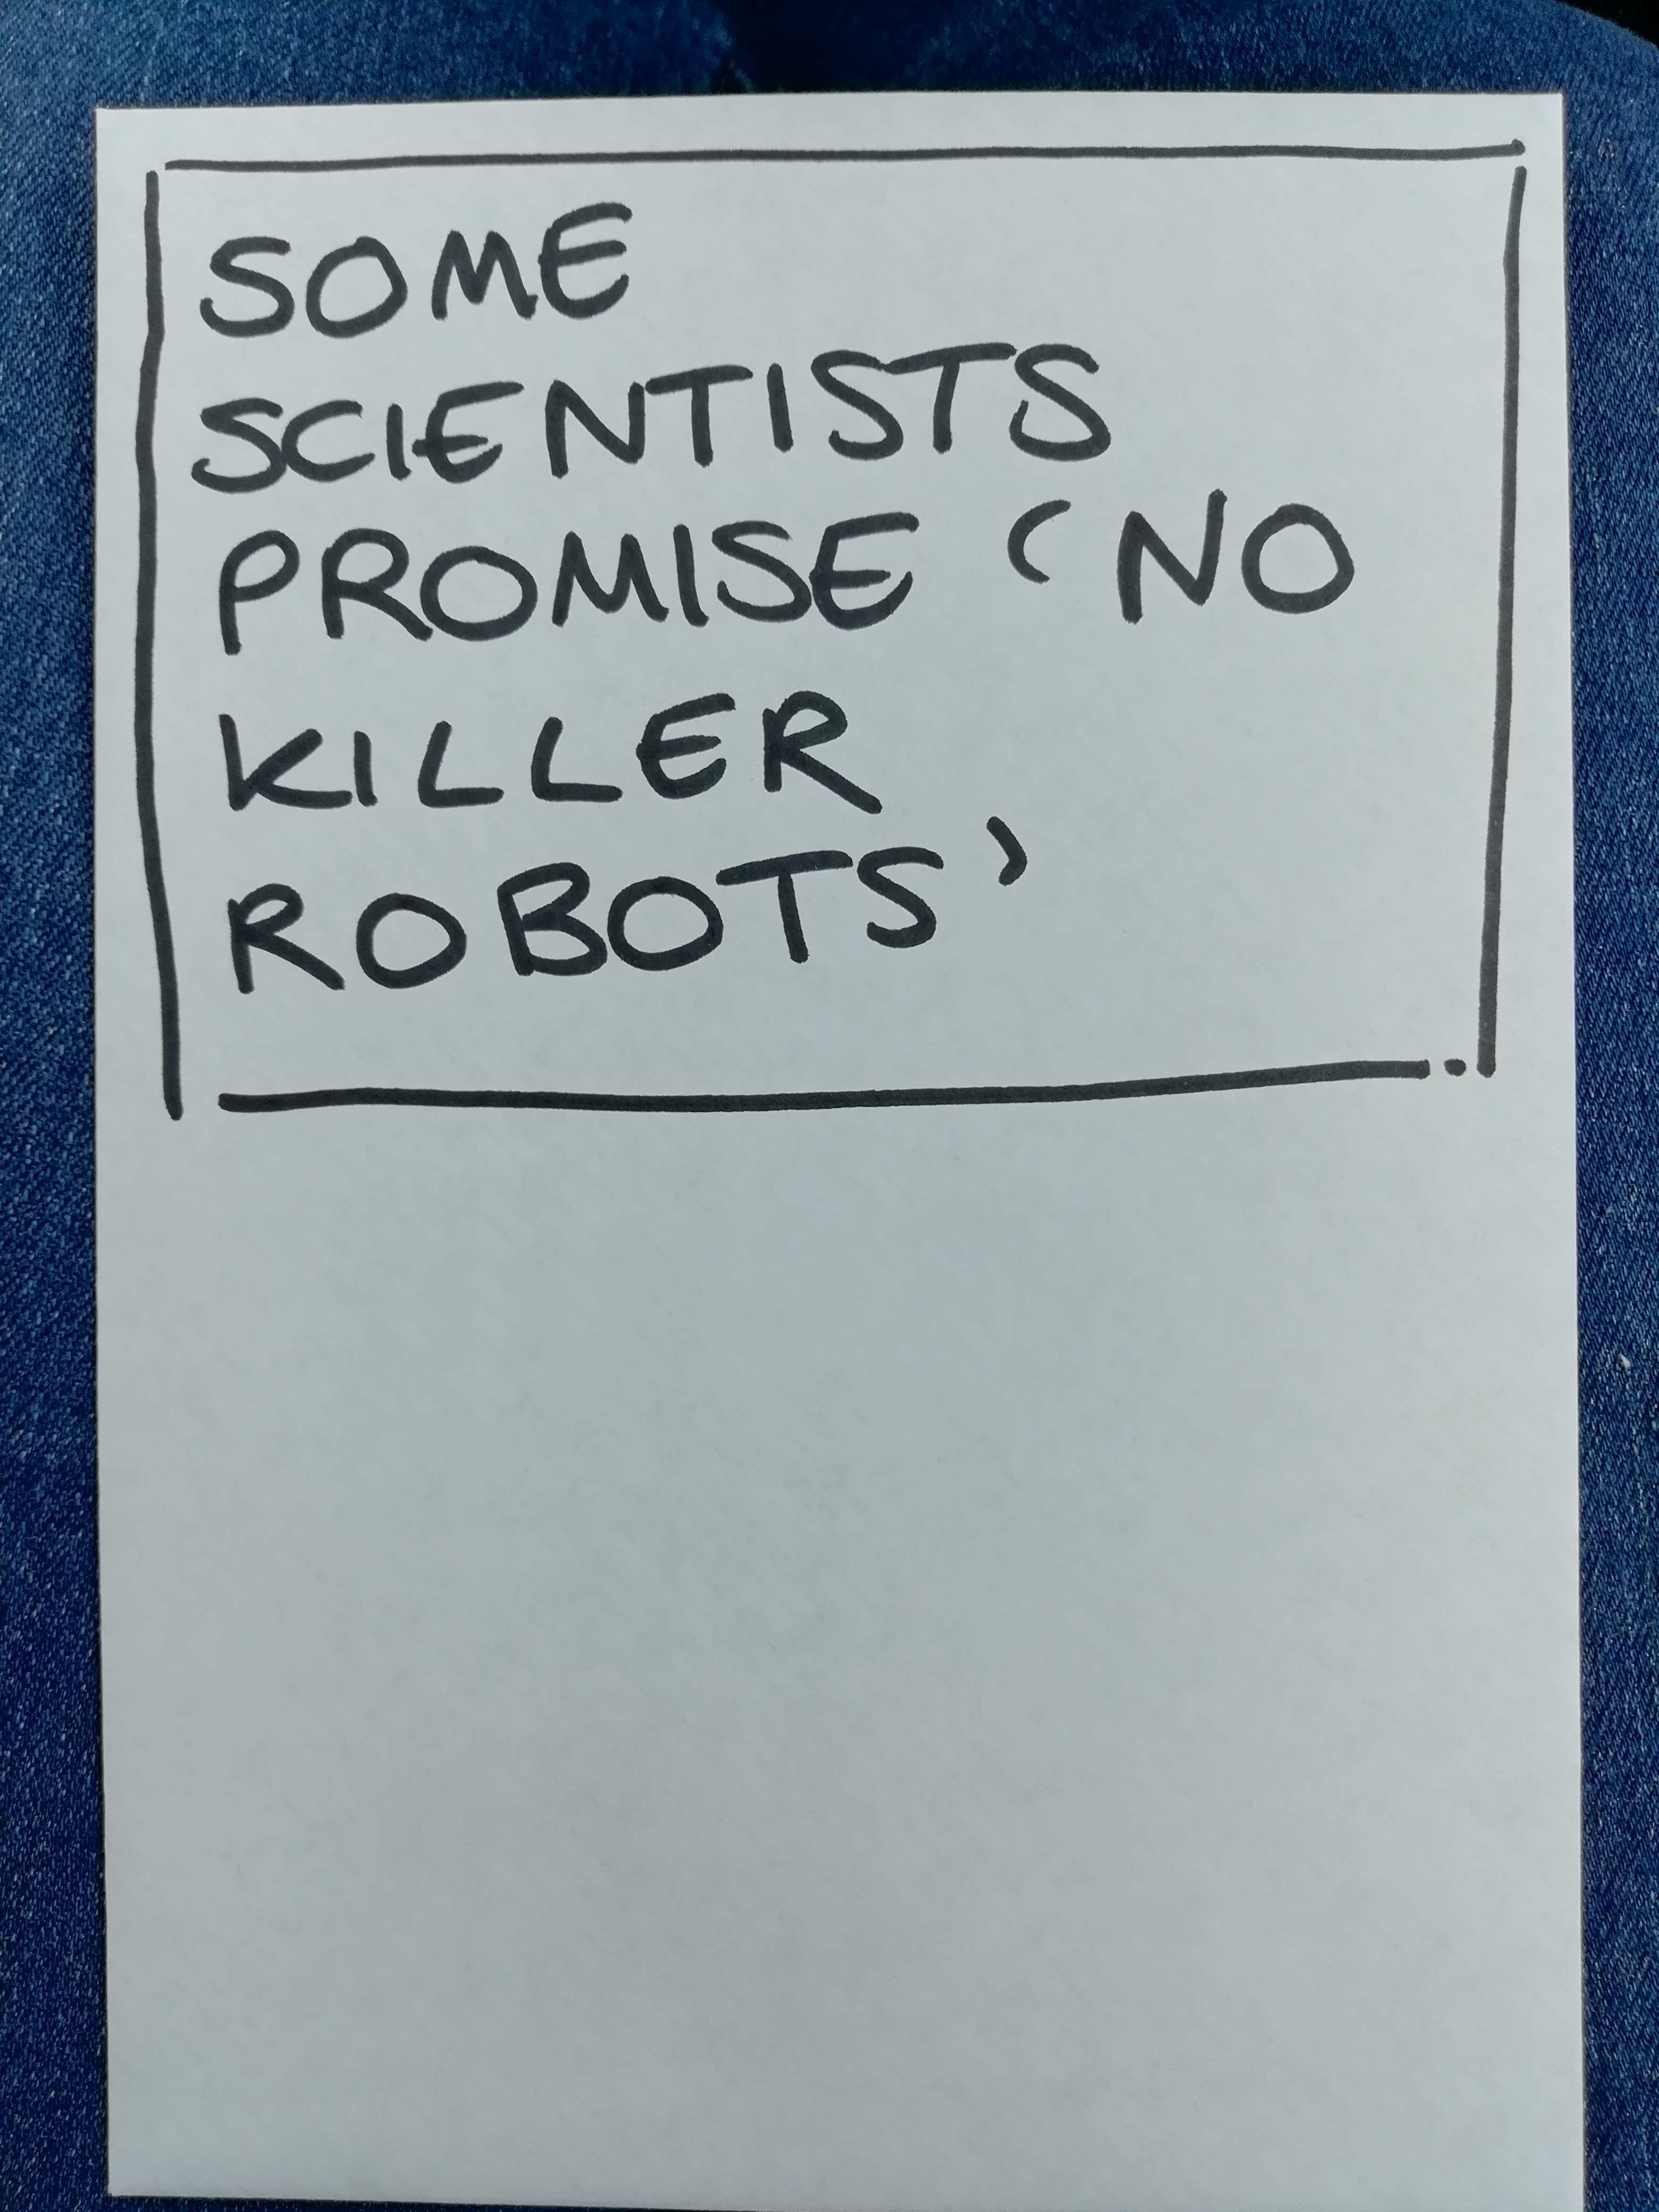 SOME
SCIENTISTS
PROMISE ‘NO
KILLER
ROBOTS’